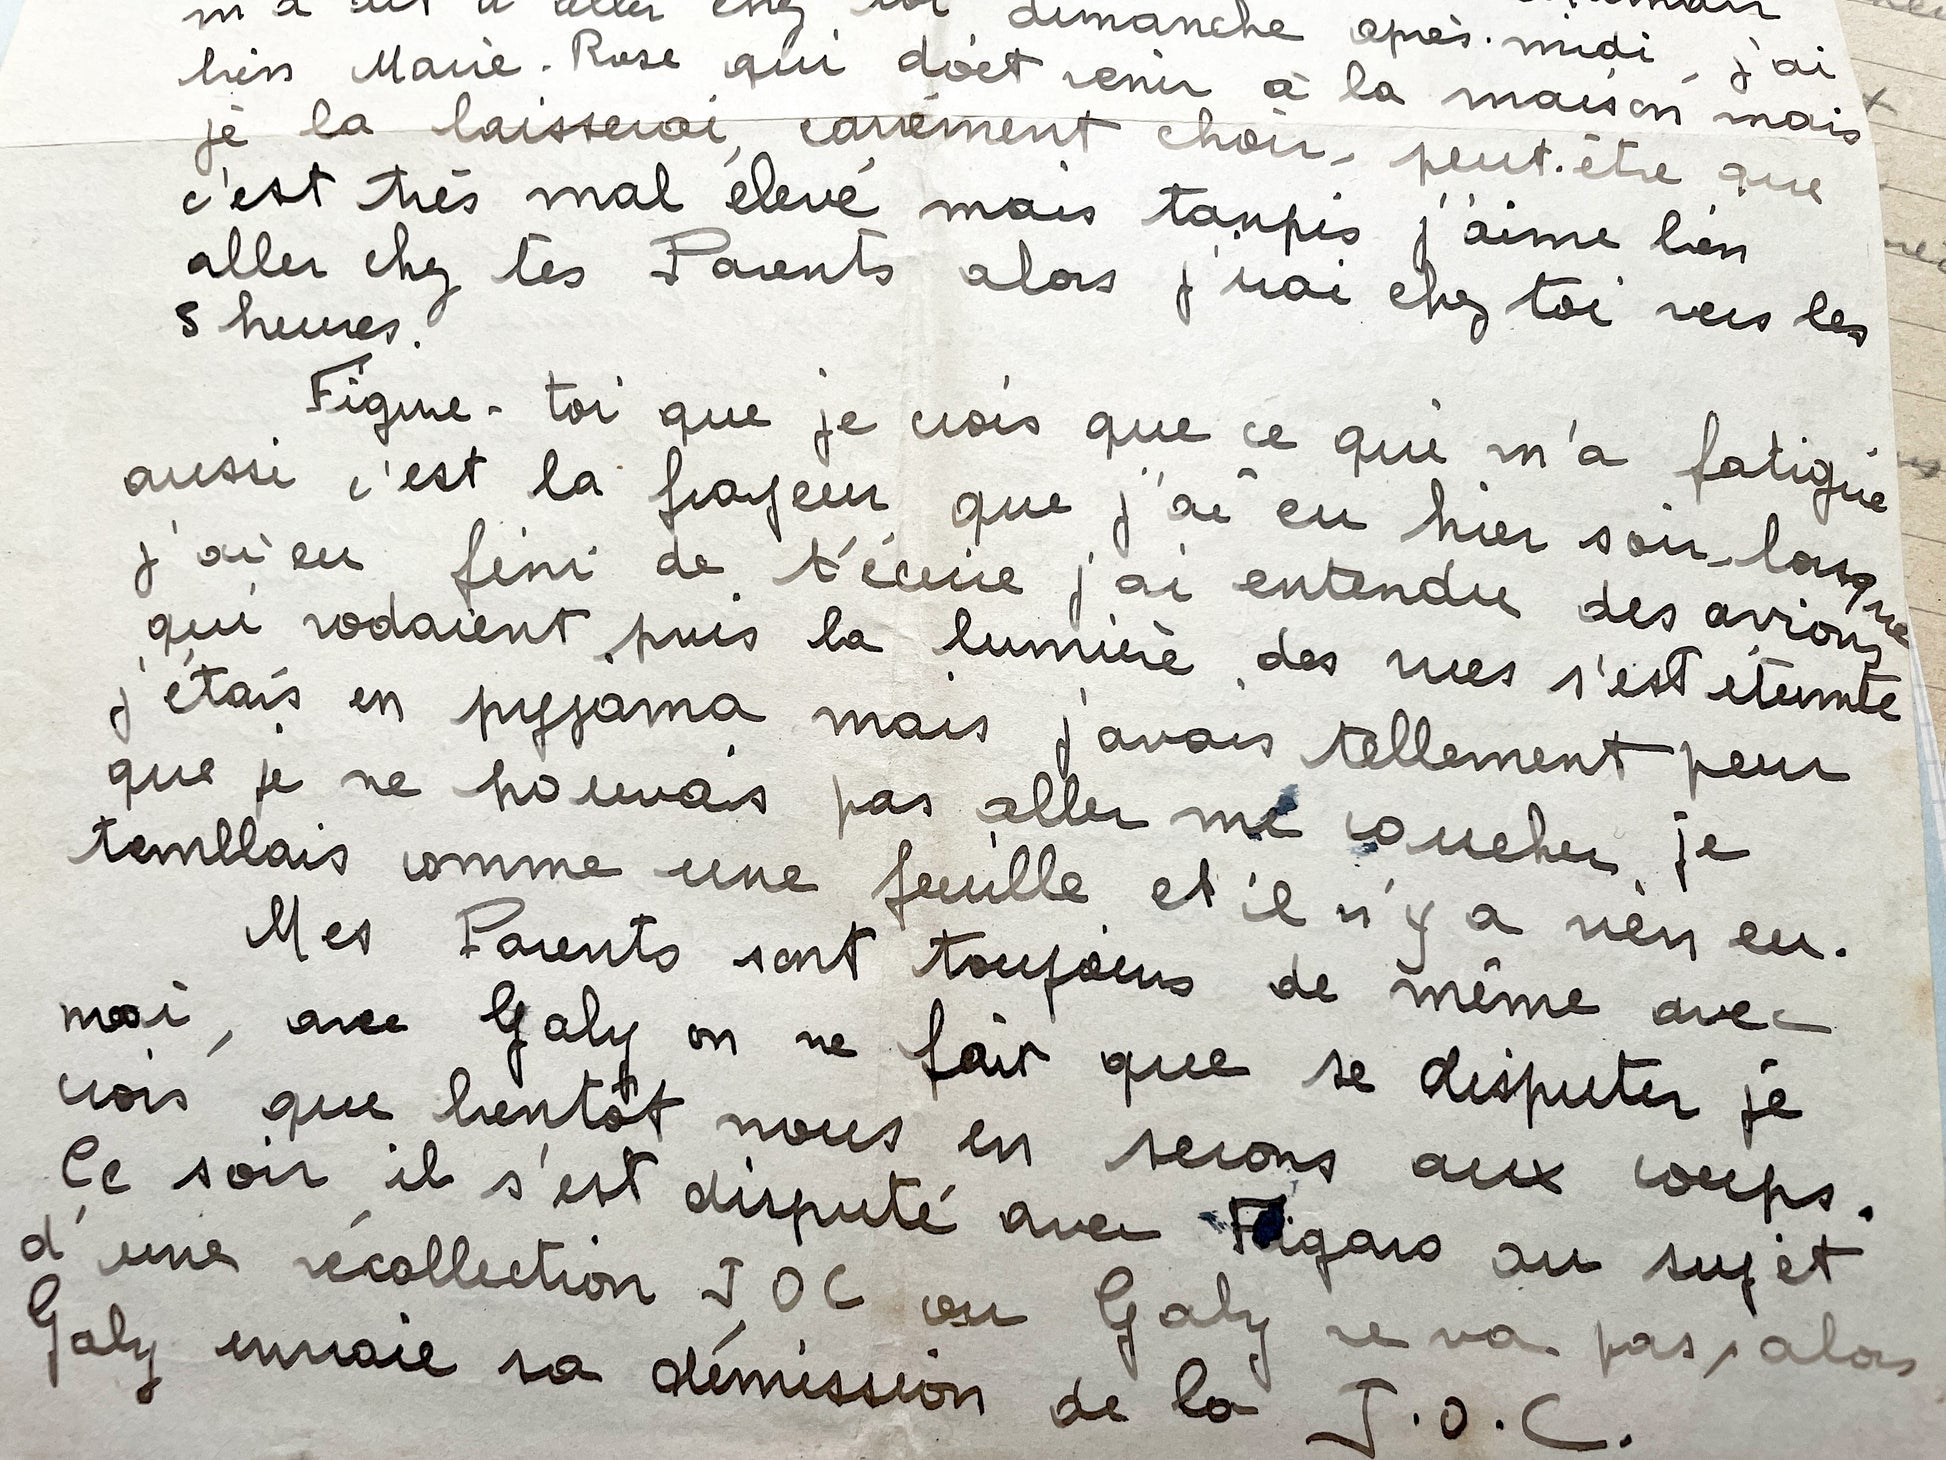 m'a dit d'aller chez toi dimanche après-midi, j'ai
bien Marie-Rose qui doit venir à la maison mais
je la laisserai, carrément choir, peut-être que
c'est très mal élevé mais tanpis j'aime bien
aller chez tes Parents alors j'irai chez toi vers les
5 heures.
Figure-toi que je crois que ce qui m'a fatigué
aussi c'est la frayeur que j'ai eu hier soir, lorsque
j'ai eu fini de t'écrire j'ai entendu des avions
qui rodaient puis la lumière des rues s'est éteinte
j'étais en pyjama mais j'avais tellement peur
que je ne pouvais pas aller me coucher je
temblais comme une feuille et il n'y a rien eu.
Mes Parents sont toujours de même avec
moi, avec Galy on ne fait que se disputer je
crois que bientôt nous en serons aux coups.
Ce soir il s'est disputé avec Figaro au sujet
d'une récollection JOC ou Galy ne va pas, alors
Galy envoie sa démission de la J.O.C.